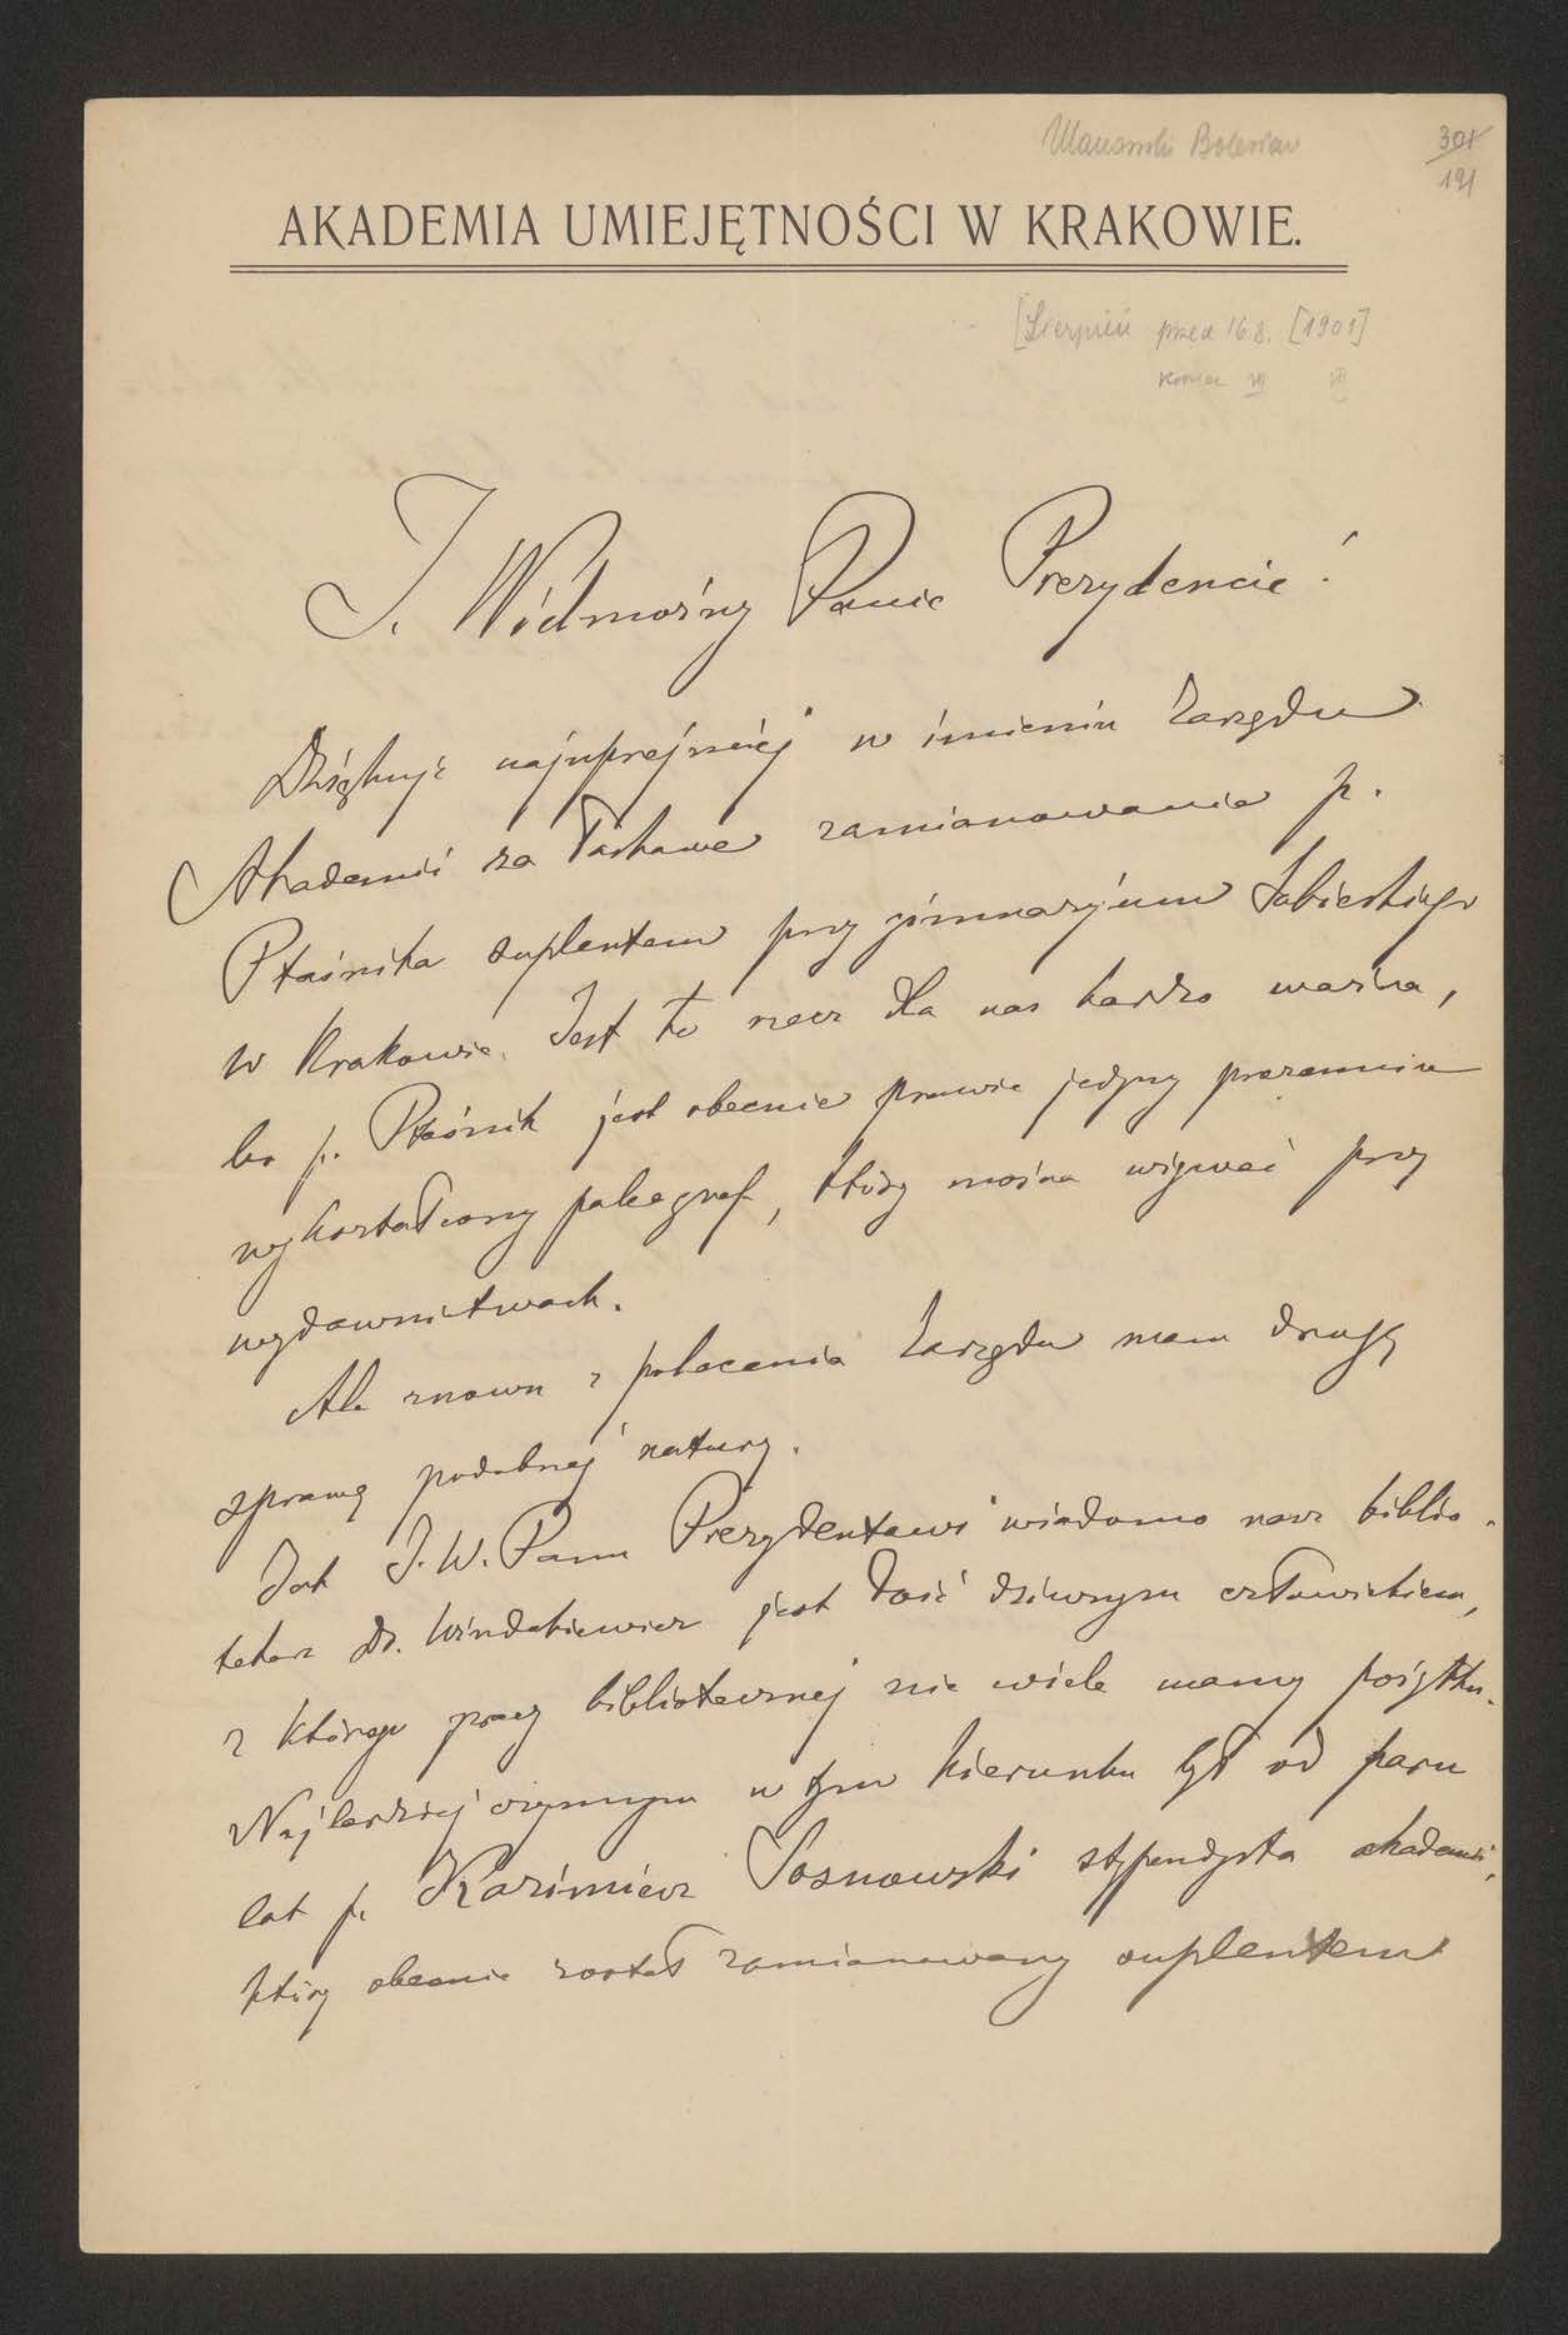 Ulanowski Bolesław
301
191
AKADEMIA UMIEJĘTNOŚCI W KRAKOWIE.
[Sierpień przed 16 8. [1901]
koniec VII VIII
J. Wielmożny Panie Prezydencie!
Dziękuję najuprzejmiej w imieniu Zarządu
Akademii za łaskawe zamianowanie p.
Ptaśnika suplentem przy gimnazyum Sobieskiego
w Krakowie. Jest to rzecz dla nas bardzo ważna,
bo p. Ptaśnik jest obecnie prawie jedyny porządnie
wykształcony paleograf, który można używać przy
wydawnictwach.
Ale znowu z polecenia Zarządu mam drugą
sprawę podobnej natury.
Jak J. W. Panu Prezydentowi wiadomo nasz biblio-
tekarz Dr. Windakiewicz jest dość dziwnym człowiekiem,
z którego pracy bibliotecznej nie wiele mamy pożytku.
Najbardziej czynnym w tym kierunku był od paru
lat p. Kazimierz Sosnowski stypendysta akademii,
który obecnie został zamianowany suplentem